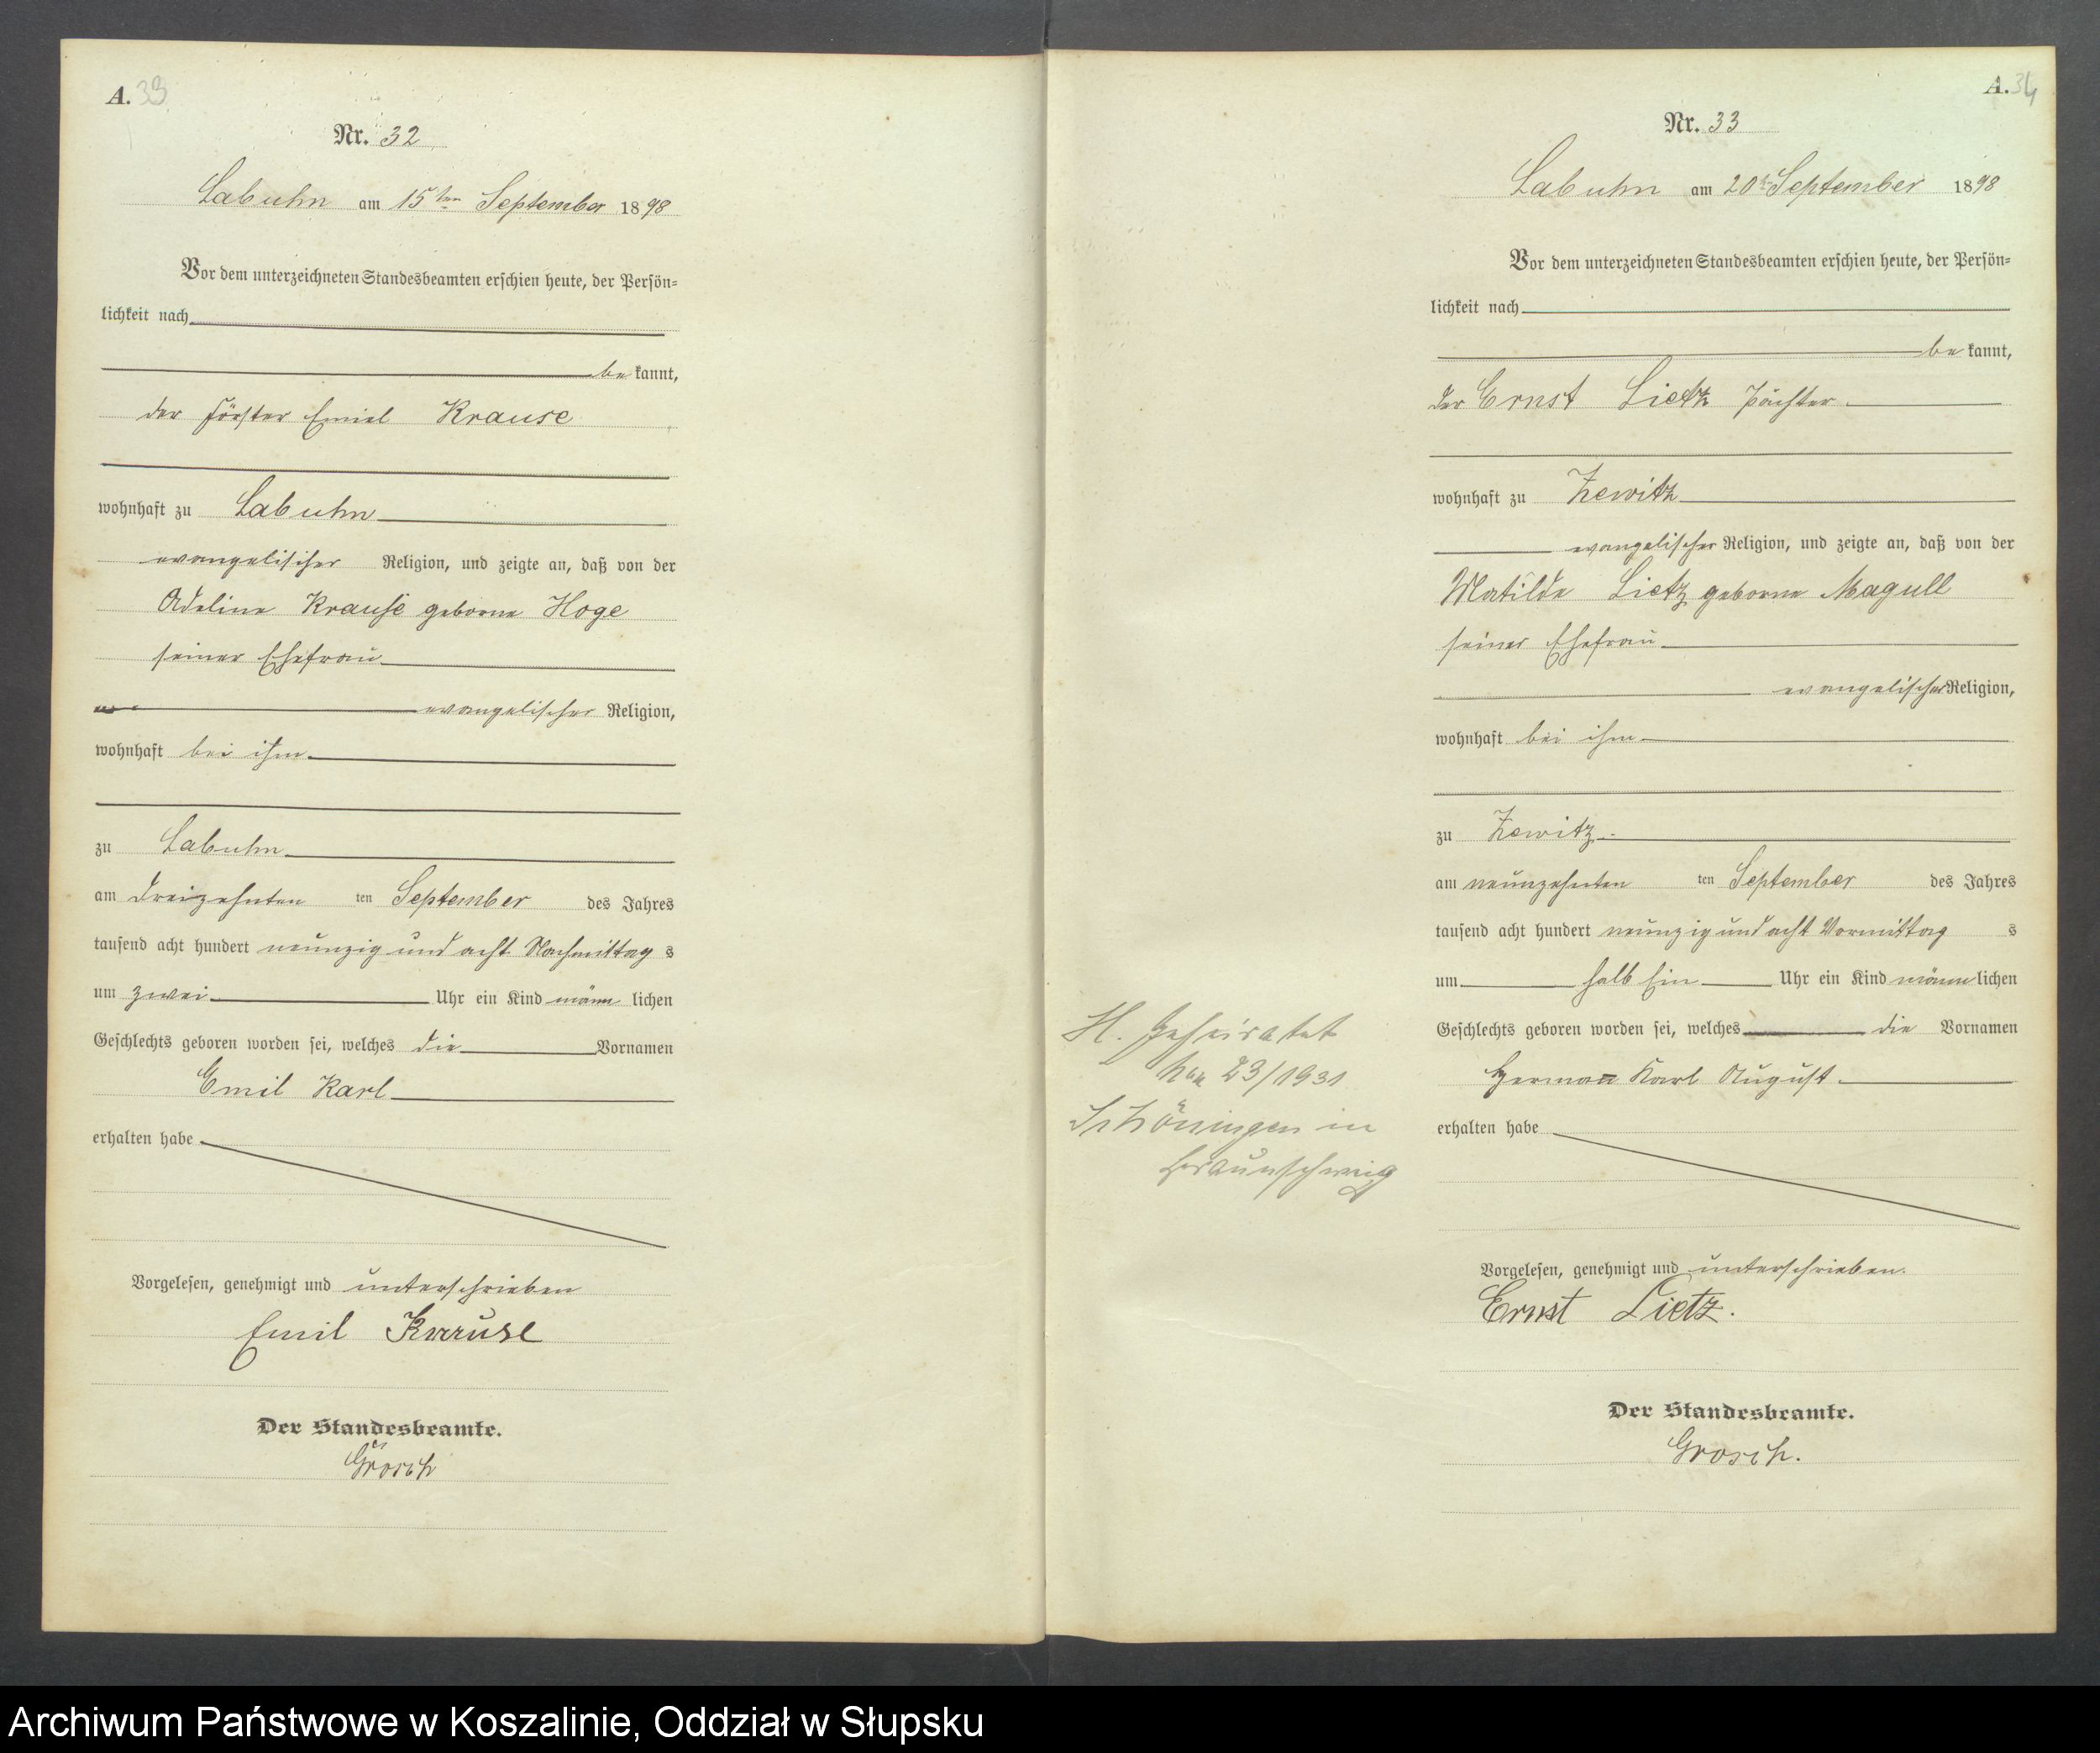 A. 33
Nr. 32
Labuhn am 15ten September 1898
Vor dem unterzeichneten Standesbeamten erschien heute, der Persön-
lichkeit nach
be kannt,
der Förster Emiel Krause
wohnhaft zu Labuhn
evangelischer Religion, und zeigte an, daß von der
Adeline Krause geborne Hoge
seiner Ehefrau
evangelischer Religion,
wohnhaft bei ihm
zu Labuhn
am dreizehnten ten September des Jahres
tausend acht hundert neunzig und acht Nachmittag s
um zwei Uhr ein Kind männ lichen
Geschlechts geboren worden sei, welches die Vornamen
Emil Karl
erhalten habe
Vorgelesen, genehmigt und unterschrieben
Emil Krause
Der Standesbeamte.
Grosch
A. 34
Nr. 33
Labuhn am 20ten September 1898
Vor dem unterzeichneten Standesbeamten erschien heute, der Persön-
lichkeit nach
be kannt,
der Ernst Lietz Pächter
wohnhaft zu Zewitz
evangelischer Religion, und zeigte an, daß von der
Matilde Lietz geborne Magull
seiner Ehefrau
evangelischer Religion,
wohnhaft bei ihm
zu Zewitz
am neunzehnten ten September des Jahres
tausend acht hundert neunzig und acht Vormittag s
um halb Ein Uhr ein Kind männ lichen
Geschlechts geboren worden sei, welches die Vornamen
Herman Karl August
erhalten habe
Vorgelesen, genehmigt und unterschrieben.
Ernst Lietz.
Der Standesbeamte.
Grosch.
H. Geheiratet
23/1931
Schöningen in
Braunschweig
Archiwum Państwowe w Koszalinie, Oddział w Słupsku